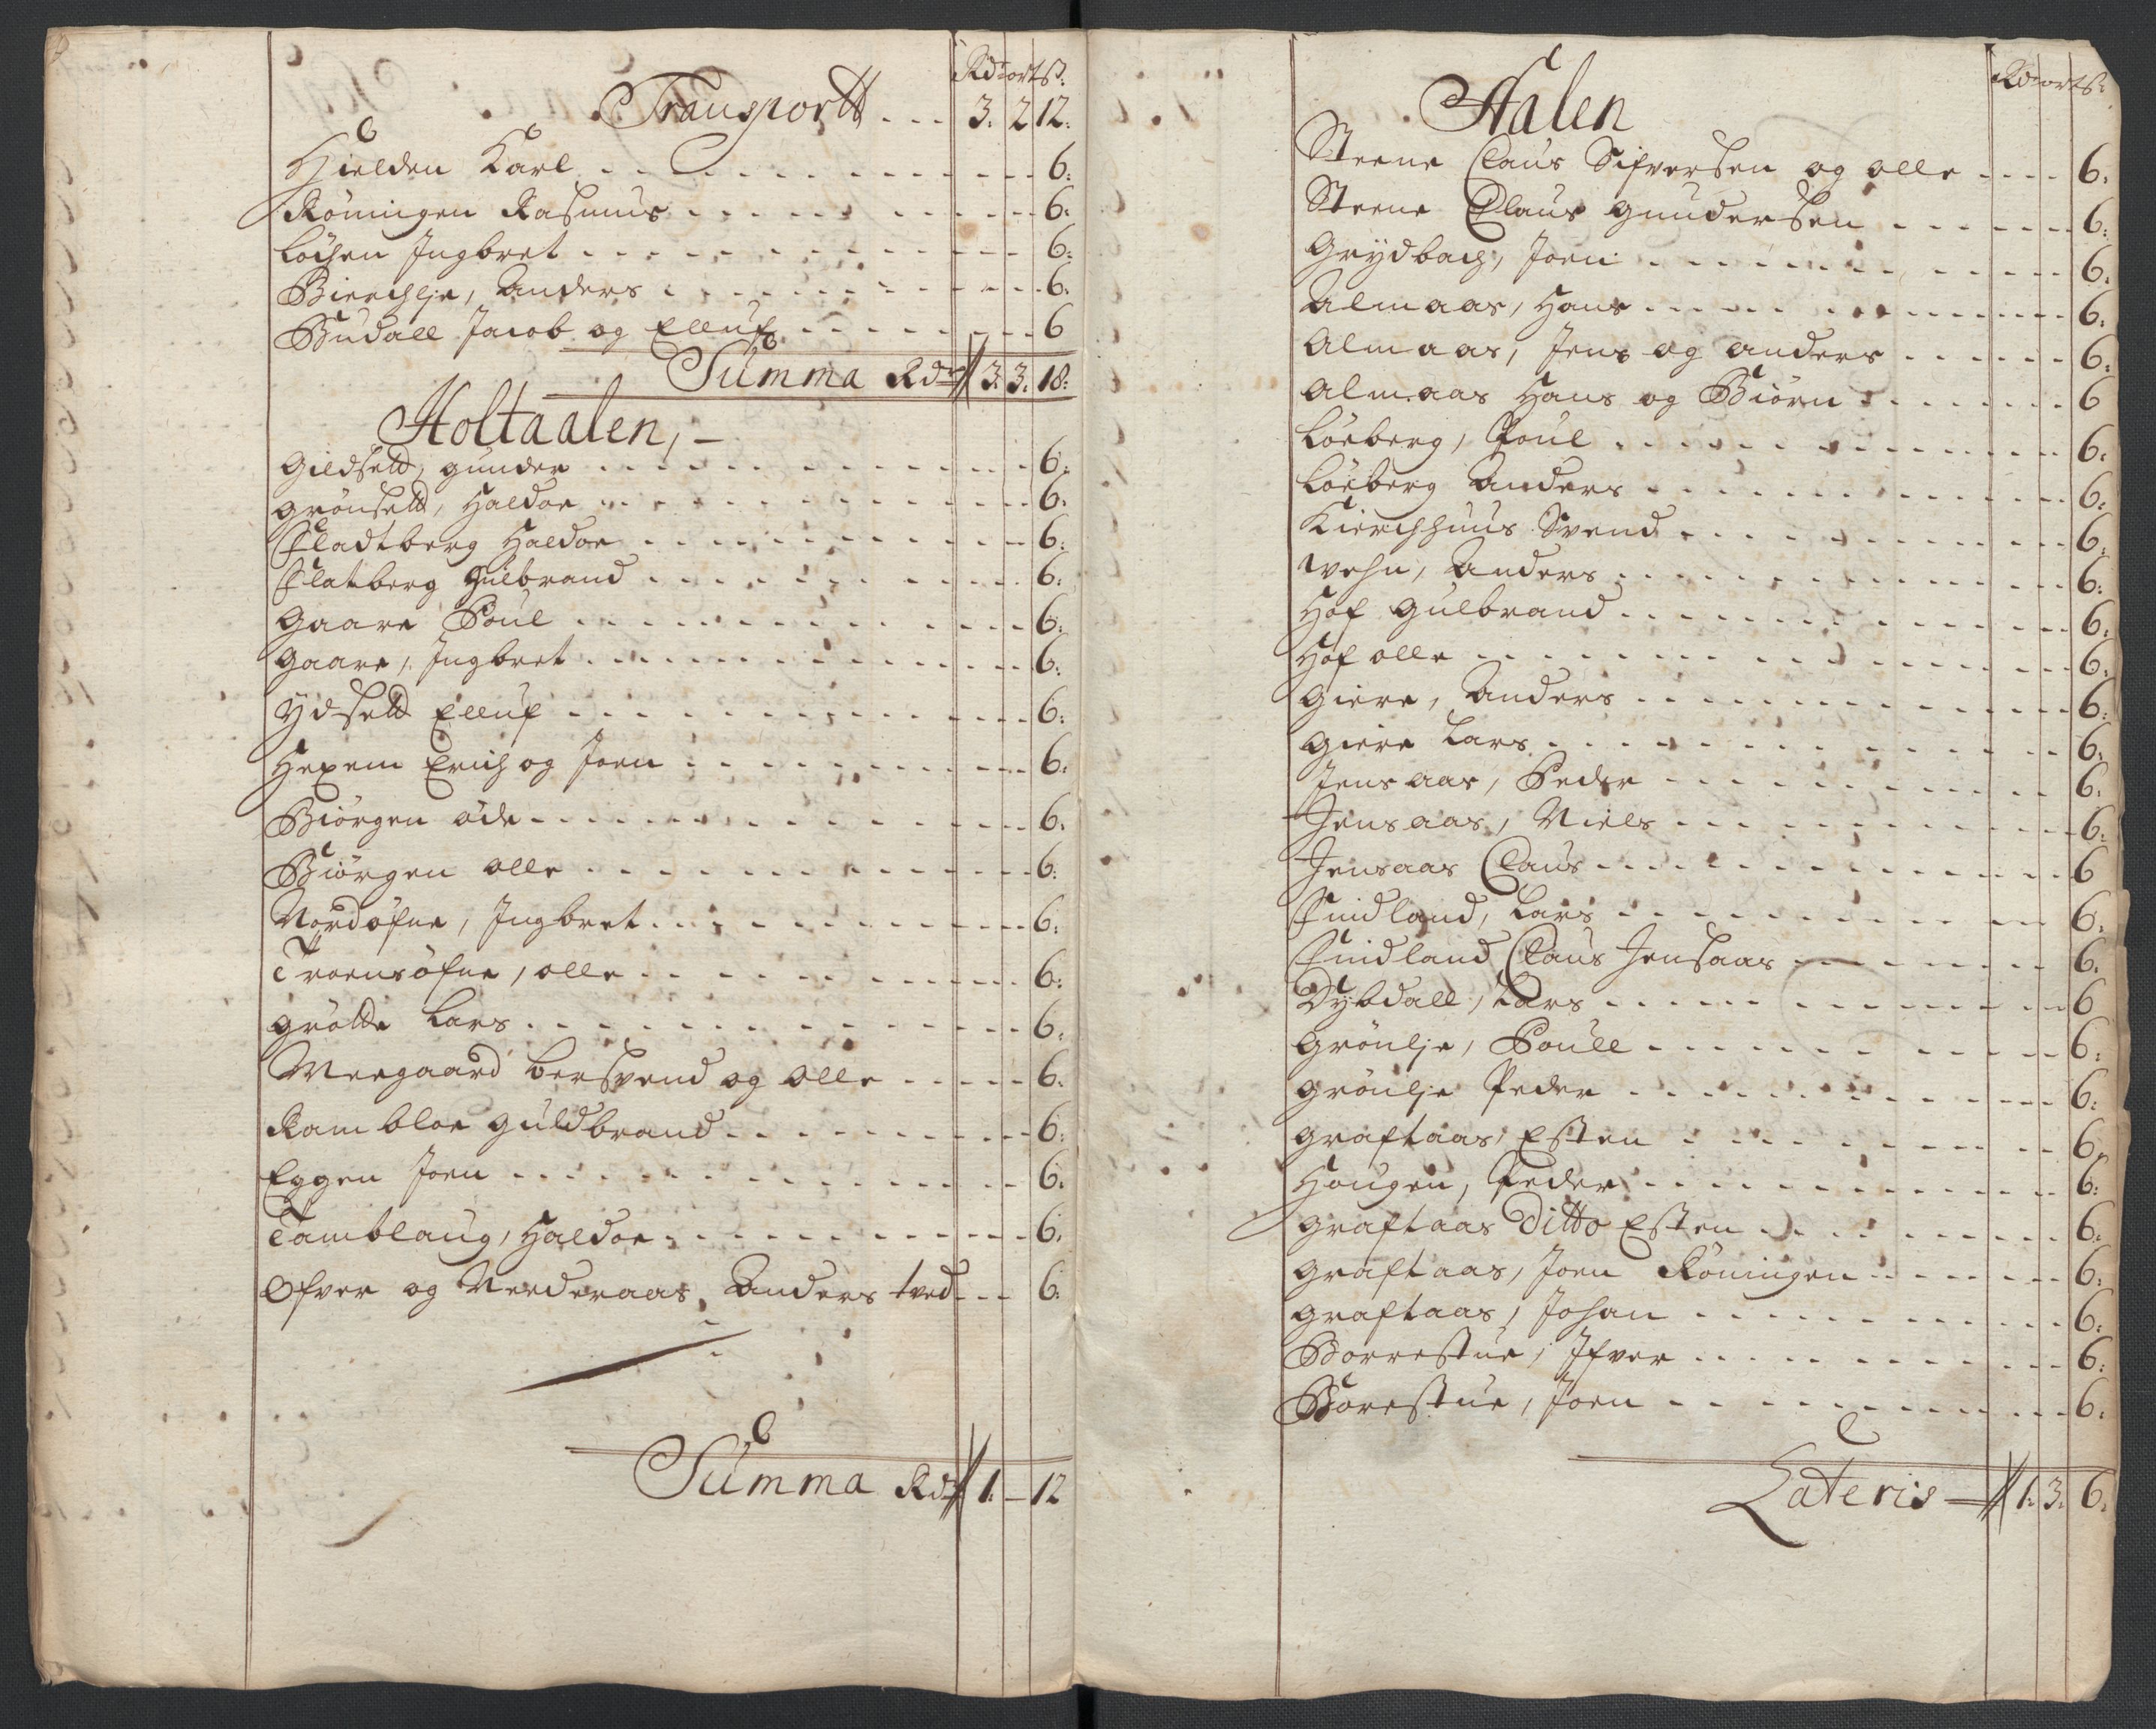 Rdr ort ß:
Transportt . . . 3. 2 12:
Hielden Karl . . . 6:
Röningen Rasmus . . . 6:
Löchen Ingbret . . . 6:
Bierchlje, Anders . . . 6:
Budall Jacob og Elluf . . . 6
Summa Rdr 3. 3. 18:
Holtaalen, -
Gildsett, gunder . . . 6:
grönsett, Haldor . . . 6:
Fladtberg Haldor . . . 6:
Flatberg Gulbrand . . . 6:
Gaare Poul . . . 6:
Gaare, Ingbret . . . 6:
Ydsett Elluf . . . 6:
Hexem Erich og Joen . . . 6:
Biörgen öde . . . 6:
Biörgen olle . . . 6:
Nordöfne, Ingbret . . . 6:
Troensöfne, olle . . . 6:
grötte Lars . . . 6:
Meegaard Berswend og olle . . . 6:
Rambloe guldbrand . . . 6:
Eggen Joen . . . 6:
Tamblaug, Haldor . . . 6:
Ofver og Nerderaas, Anders tved . . . 6:
Summa Rdr 1: - 12
Rdr ort ß:
Aalen
Steene Claus Sifversen og olle . . . 6:
Steene Claus gundersen . . . 6:
Grydbach, Joen . . . 6:
Almaas, Hans . . . 6:
Almaas, Jens og anders . . . 6:
Almaas Hans og Biörn . . . 6
Löeberg, Poul . . . 6:
Löeberg Anders . . . 6:
Kierchhuus Svend . . . 6:
Wehn, Anders . . . 6:
Hof gulbrand . . . 6:
Hof olle . . . 6:
Giere, Anders . . . 6:
Giere Lars . . . 6:
Jensaas, Peder . . . 6:
Jensaas, Niels . . . 6:
Jensaas Claus . . . 6
Findland, Lars . . . 6:
Findland Claus Jensaas . . . 6:
Dybdall, Lars . . . 6
Grönlje, Poull . . . 6:
grönlje Peder . . . 6:
graftaas, Esten . . . 6:
Hougen, Peder . . . 6:
graftaas Ditto Esten . . . 6:
graftaas, Joen Röningen . . . 6:
graftaas, Johan . . . 6:
Borrestue, Ifver . . . 6:
Borestue, Joen . . . 6:
Lateris 1: 3: 6: